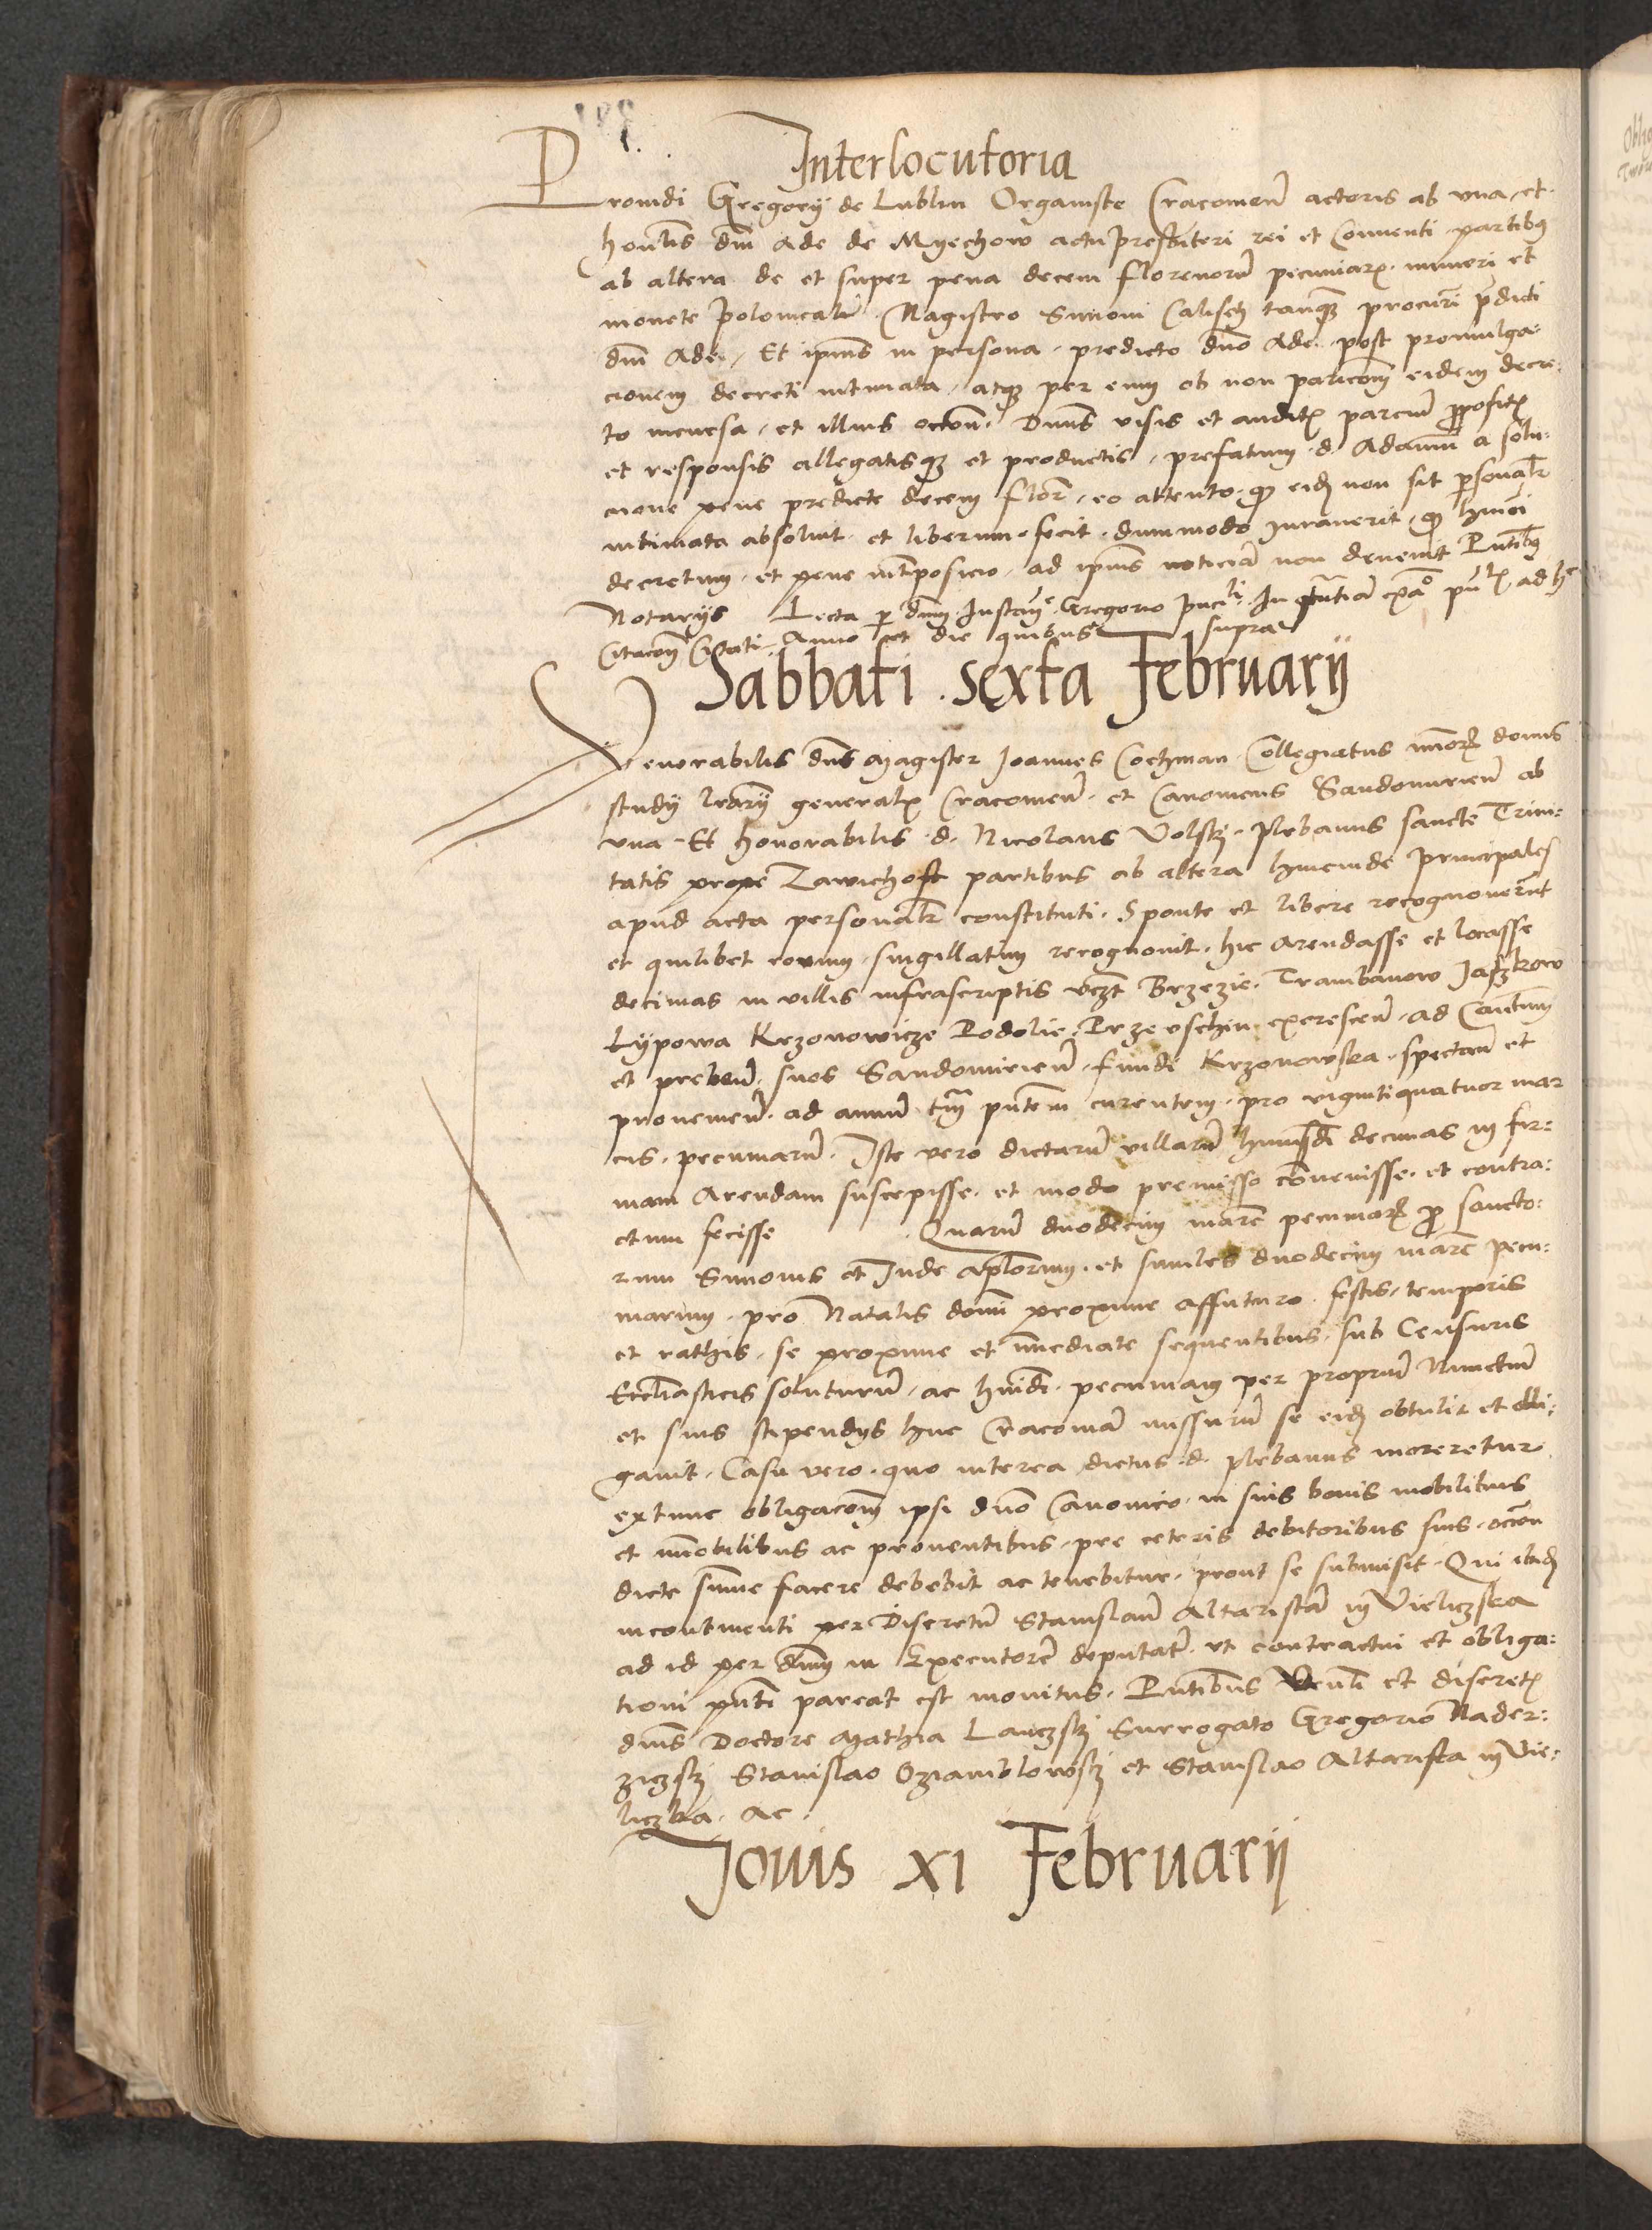 Interlocutoria
Prouidi Gregorij de Lublin Organiste Cracouien̄ actoris ab vna et
honlis dni Ade de Myechow actu presbiteri rei et Conuenti partibus
ab altera de et super pena decem florenorum pecuniarum numeri et
monete polonicalis Magistro Simoni Calisch tanquam procuri predicti
dni Ade, Et ipius in persona predicto dno Ade post promulga:
cionem decreti intimata, atque per eum ob non paricom eidem decre:
to incursa, et illius occon̄. Dnus visis et auditis parcium propositis
et responsis allegatisque et productis, prefatum d. Adamum a solu:
cione pene predicte decem flor. eo attento, quod eidem non sit personalr
intimata absoluit et liberum fecit, dummodo iurauerit, quod hmoi
decretum, et pene interposicio, ad ipius noticiam non deuenit Pntibus
Notarijs Lecta per dnm Gregorio
Citacom Anno et die quibus supra
Sabbati sexta Februarij
Venerabilis dns Magister Joannes Coczman Collegiatus minoris domus
studij lrarij generalis Cracouien̄ et Canonicus Sandomirien̄ ab
vna Et honorabilis d. Nicolaus Volskj plebanus sancte Trini:
tatis prope Zawichost partibus ab altera hincinde principales
apud acta personalr constituti. Sponte et libere recognouerunt
et quilibet eorum singillatim recognouit, hic Arendasse et locasse
decimas in villis infrascriptis vczt Brzezie, Trambanow Jaszkow
Lypowa Krzonowicze Podolie Przeuschin excrescen̄ ad Cantum
et preben̄ suos Sandomirien̄ fundi Krzonowska spectan̄ et
prouenien̄ ad annum tm pntem currentem, pro vigintiquatuor mar
cis pecuniarum. Iste vero dictarum villarum huiusmodi decimas in fir:
mam Arendam suscepisse, et modo premisso conuenisse et contra:
ctum fecisse Quarum duodecim marc pecuniarum pro sancto:
rum Simonis et Jude aplorum, et similes duodecim marc pecu:
niarum, pro Natalis domi proxime affuturo, festis, temporis
et rathis, se proxime et immediate sequentibus, sub Censuris
Ecclesiasticis soluturum, ac hmoi pecuniam per proprium Nunctium
et suis stipendijs huc Cracouiam missurum se eidem obtulit et obli:
gauit. Casu vero, quo interea dictus d. plebanus moreretur
extunc obligacom ipsi dno Canonico, in suis bonis mobilibus
et immobilibus ac prouentibus, pre ceteris debitoribus suis, occon
dicte summe facere debebit ac tenebitur, prout se submisit. Qui ibidem
incontinenti per Discretum Stanislaum Altaristam in Vieliczka
ad id per dnm in Executorem deputatum, vt contractui et obliga:
tioni pnti pareat est monitus. Pntibus Venli et discretis
dnis Doctore Mathia Lanczskj Surrogato Gregorio Nader:
ziczskj Stanislao Oziamblowskj et Stanislao Altarista in Vie:
liczka. ac.
Jouis XI Februarij